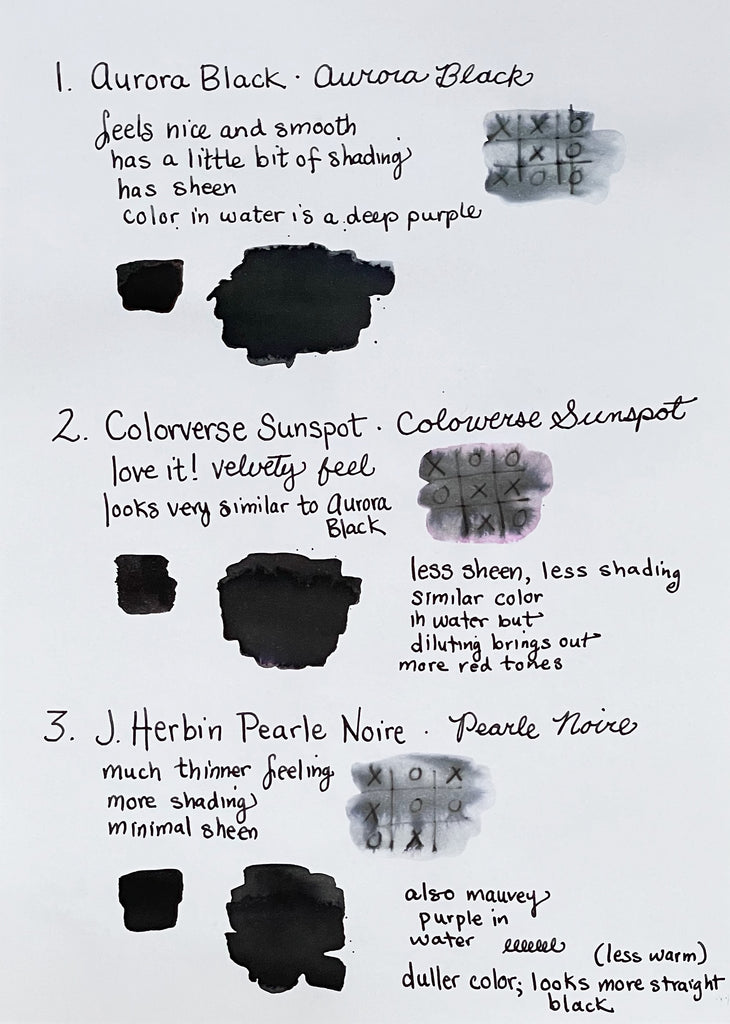 1. Aurora Black · Aurora Black
feels nice and smooth
has a little bit of shading
has sheen
color in water is a deep purple
X X O
X O
X O O
2. Colorverse Sunspot · Colorverse Sunspot
love it! velvety feel
looks very similar to Aurora
Black
X O O
O X X
X O
less sheen, less shading
similar color
in water but
diluting brings out
more red tones
3. J. Herbin Pearle Noire · Pearle Noire
much thinner feeling
more shading
minimal sheen
X O X
X O O
O X
also mauvey
purple in
water
(less warm)
duller color; looks more straight
black